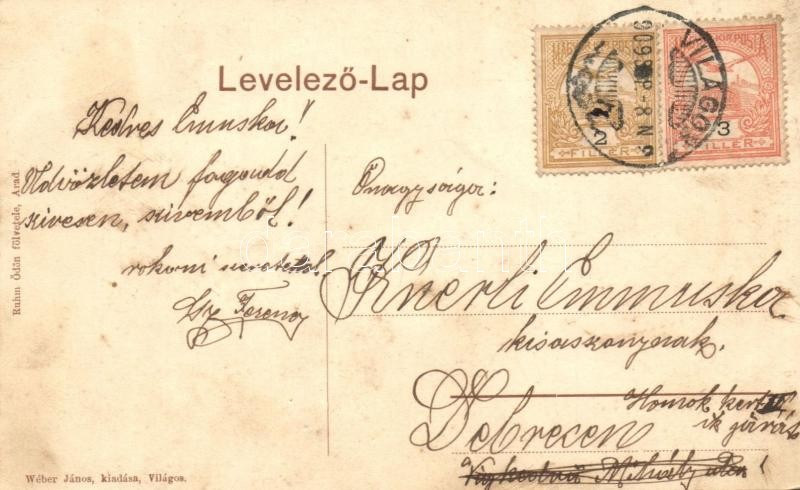 Levelező-Lap
Kedves Emuska!
Üdvözletem fogadd
szivesen, szivemből!
rokoni szeretettel
Ferencz
Ruhm Ödön fölvétele, Arad.
Wéber János, kiadása, Világos.
2
FILLÉR
VILÁGOS
909
3
FILLÉR
Őnagysága:
Emmuska
kisasszonynak
Homok kert
Debrecen
ik járás
Mihály utca!